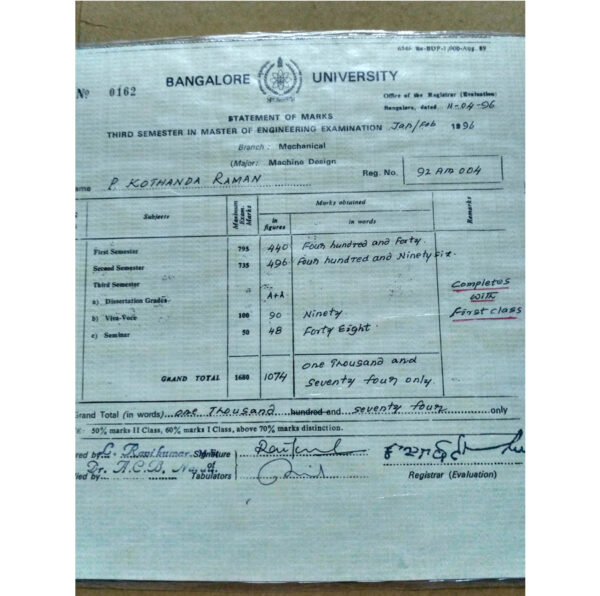 6546 Bn-BUP-1,000-Aug. 89
No 0162
BANGALORE UNIVERSITY
Office of the Registrar (Evaluation)
Bangalore, dated 11-04-96
STATEMENT OF MARKS
THIRD SEMESTER IN MASTER OF ENGINEERING EXAMINATION Jan/Feb 1996
Branch: Mechanical
(Major: Machine Design
Reg. No. 92 AM 004
ame P. KOTHANDA RAMAN
Subjects Maximum Exam. Marks Marks obtained Remarks
in figures in words
First Semester 795 440 Four hundred and Forty.
Second Semester 735 496 Four hundred and Ninety Six.
Third Semester
a) Dissertation Grades A+A
b) Viva-Voce 100 90 Ninety
c) Seminar 50 48 Forty Eight.
Completes
with
First Class
GRAND TOTAL 1680 1074 One Thousand and
Seventy four only.
Grand Total (in words) one Thousand hundred and seventy four only
E: 50% marks II Class, 60% marks I Class, above 70% marks distinction.
red by C. Ravikumar Signature
Dr. A.C.B. of
ied by Tabulators Registrar (Evaluation)